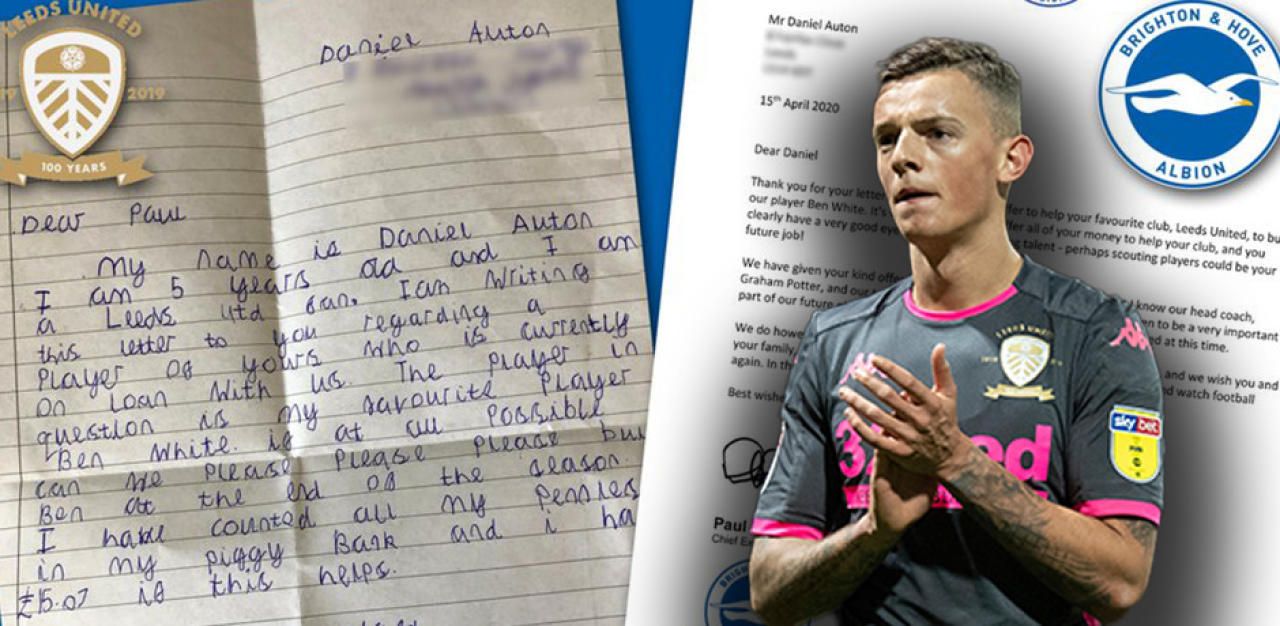 LEEDS UNITED
19 2019
100 YEARS
Daniel Auton
Dear Paul
My name is Daniel Auton
I am 5 years old and I am
a Leeds utd fan. I am writing
this letter to you regarding a
Player of yours who is currently
on loan with us. The player in
question is my favourite player
Ben White. if at all possible
can we please please please bu
Ben at the end of the season.
I have counted all my pennies
in my piggy Bank and i ha
£15.07 if this helps.
BRIGHTON & HOVE
ALBION
Mr Daniel Auton
15th April 2020
Dear Daniel
Thank you for your letter
fer to help your favourite club, Leeds United, to bu
our player Ben White. It's
ffer all of your money to help your club, and you
clearly have a very good eye
g talent - perhaps scouting players could be your
future job!
We have given your kind offe
know our head coach,
Graham Potter, and our
en to be a very important
part of our future
ed at this time.
We do howe
and we wish you and
your family,
nd watch football
again. In th
Best wishe
Paul
Chief Ex
LEEDS UNITED
32Red
sky bet
EFL